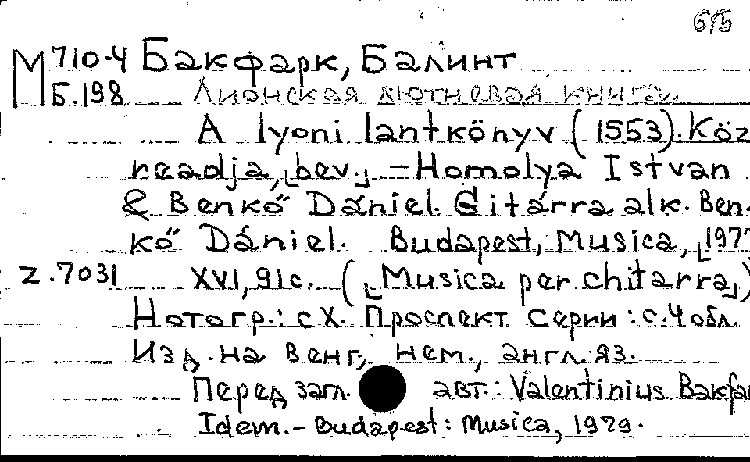 6/5
М 710-4 Бакфарк, Балинт
Б.198 Лионская лютневая книга.
A lyoni lantkönyv (1553). Köz
readja, [bev.] – Homolya Istvan
& Benkő Dániel. Gitárra alk. Ben
kő Dániel. Budapest, Musica, [197
z.7031 XVI, 91 с. ([Musica per chitarra])
Нотогр.: с X. Проспект серии: с. 4 обл.
Изд. на венг., нем., англ. яз.
Перед загл. авт.: Valentinius Bakfa
Idem. – Budapest: Musica, 1979.